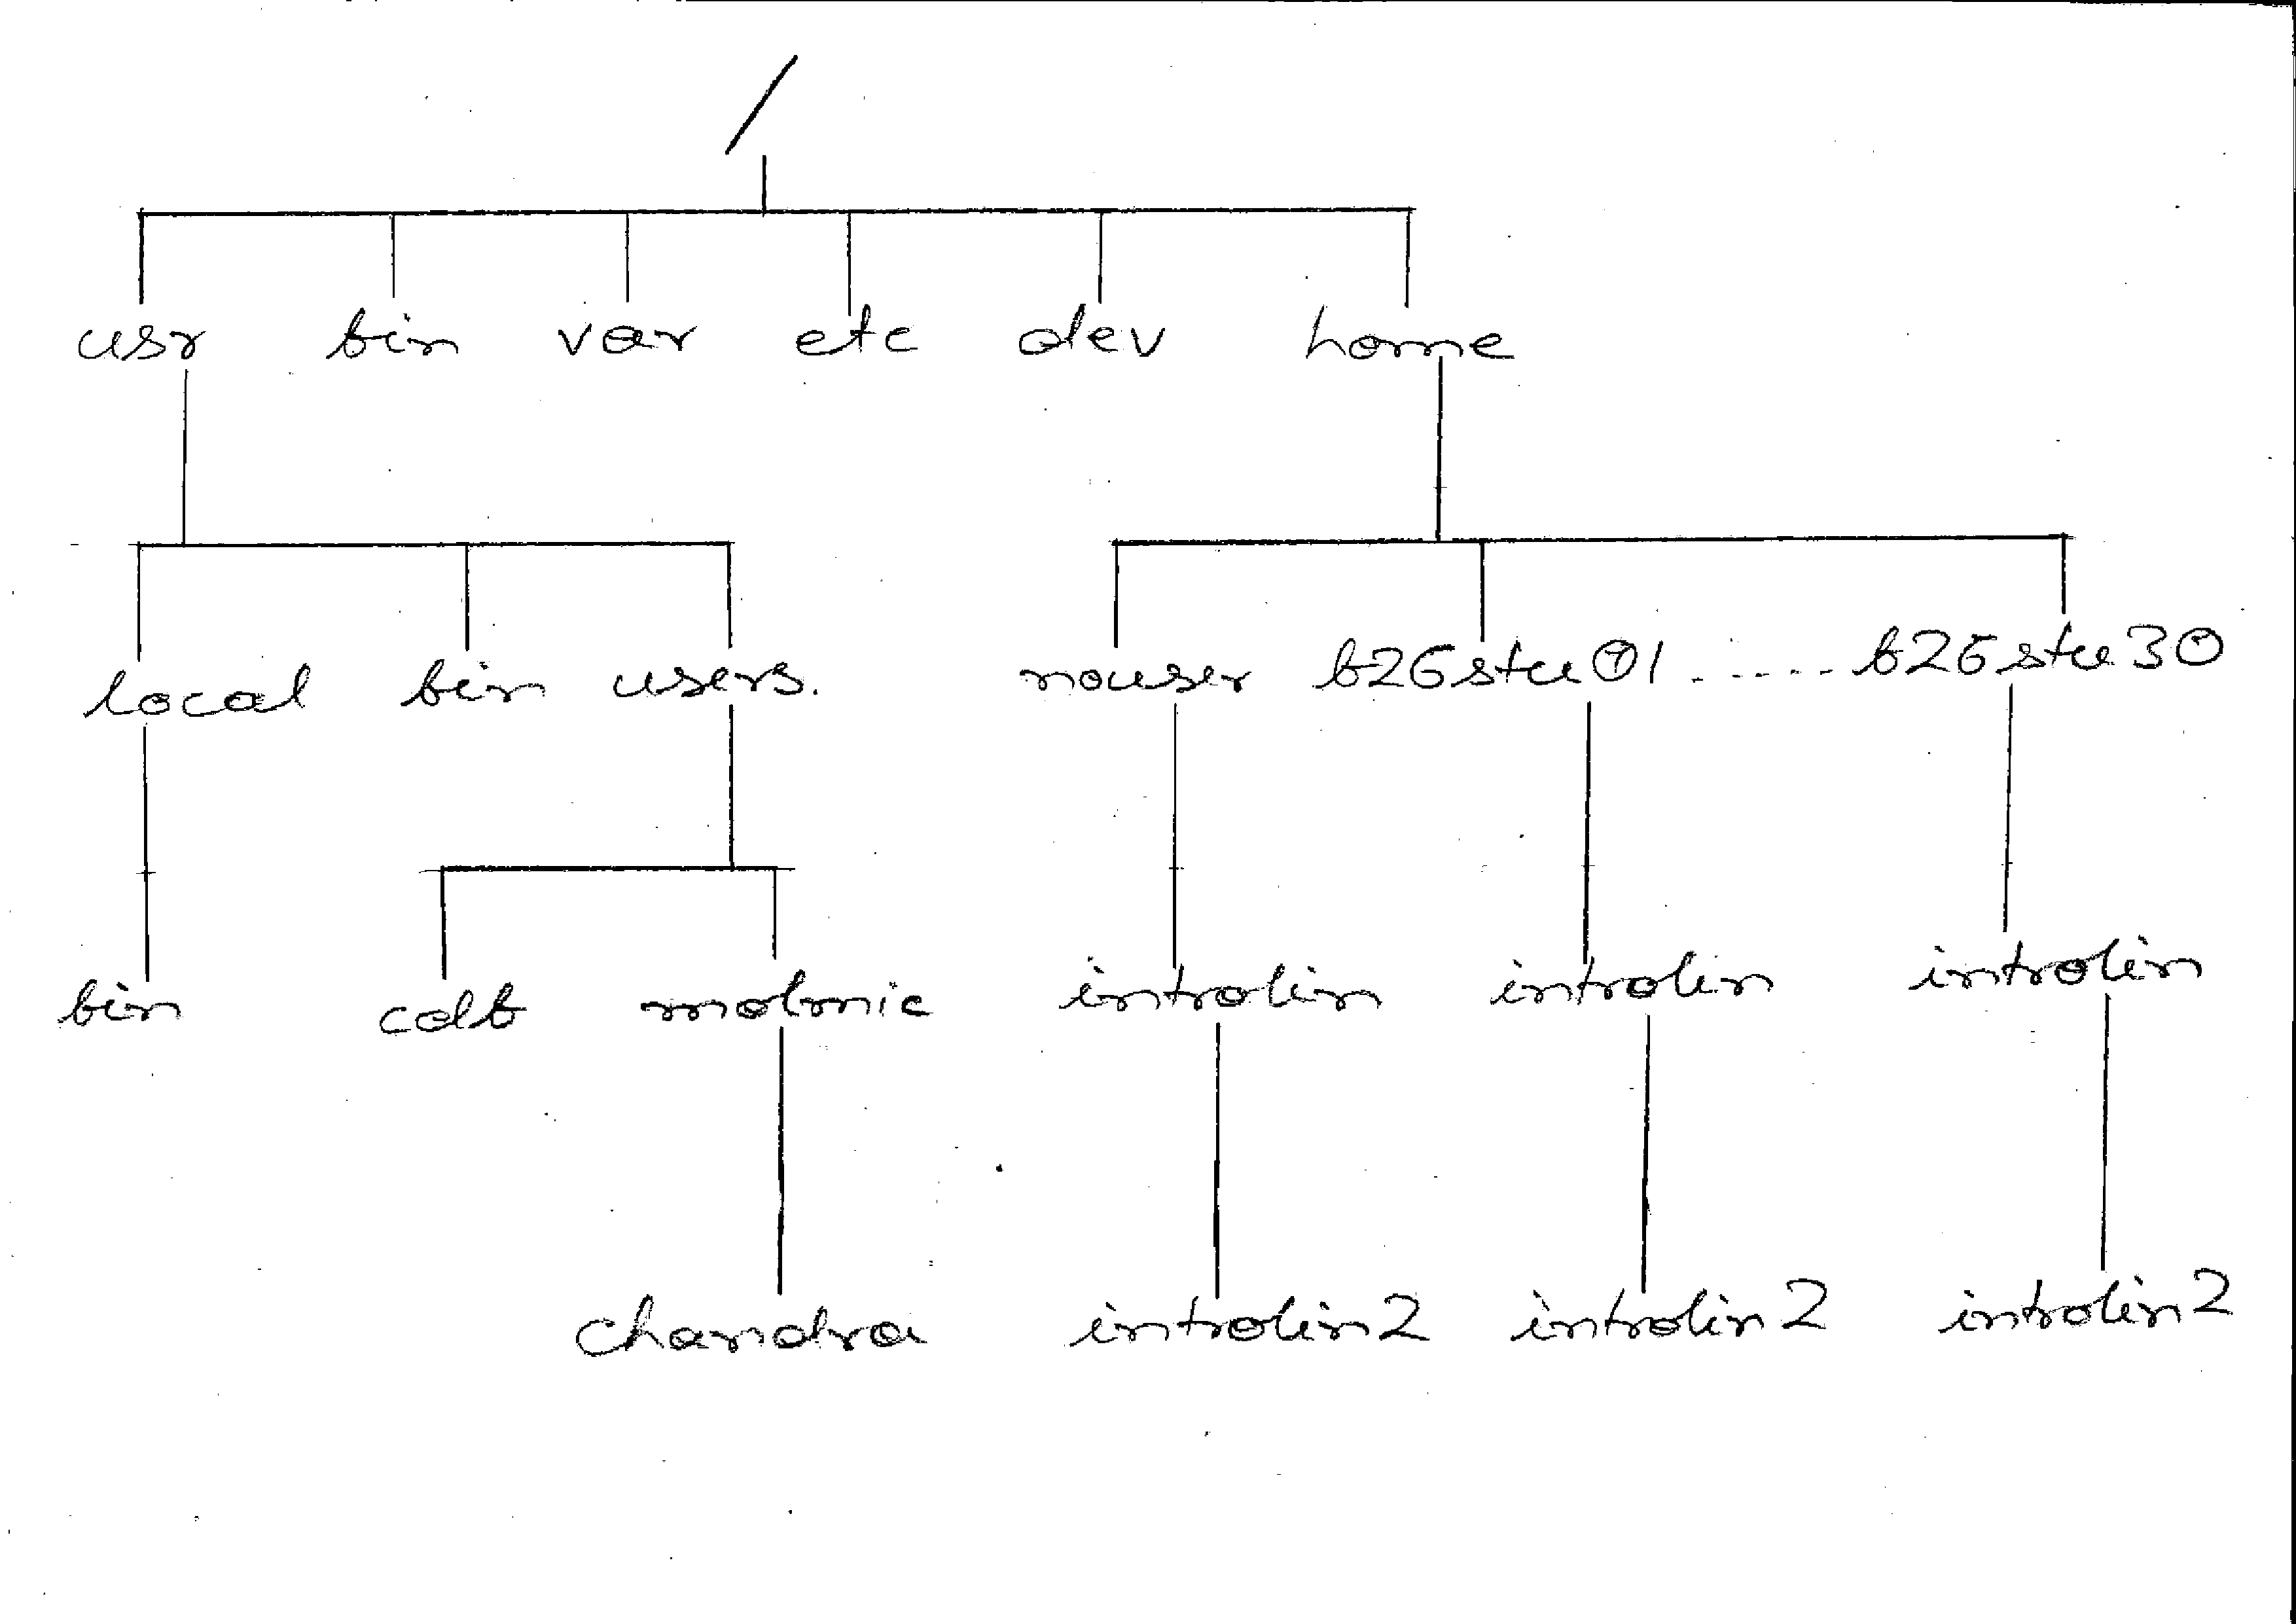 /
usr bin var etc dev home
local bin users. nouser b26stu01 ..... b26stu30
bin cdlb molmic introlin introlin introlin
chandra introlin2 introlin2 introlin2